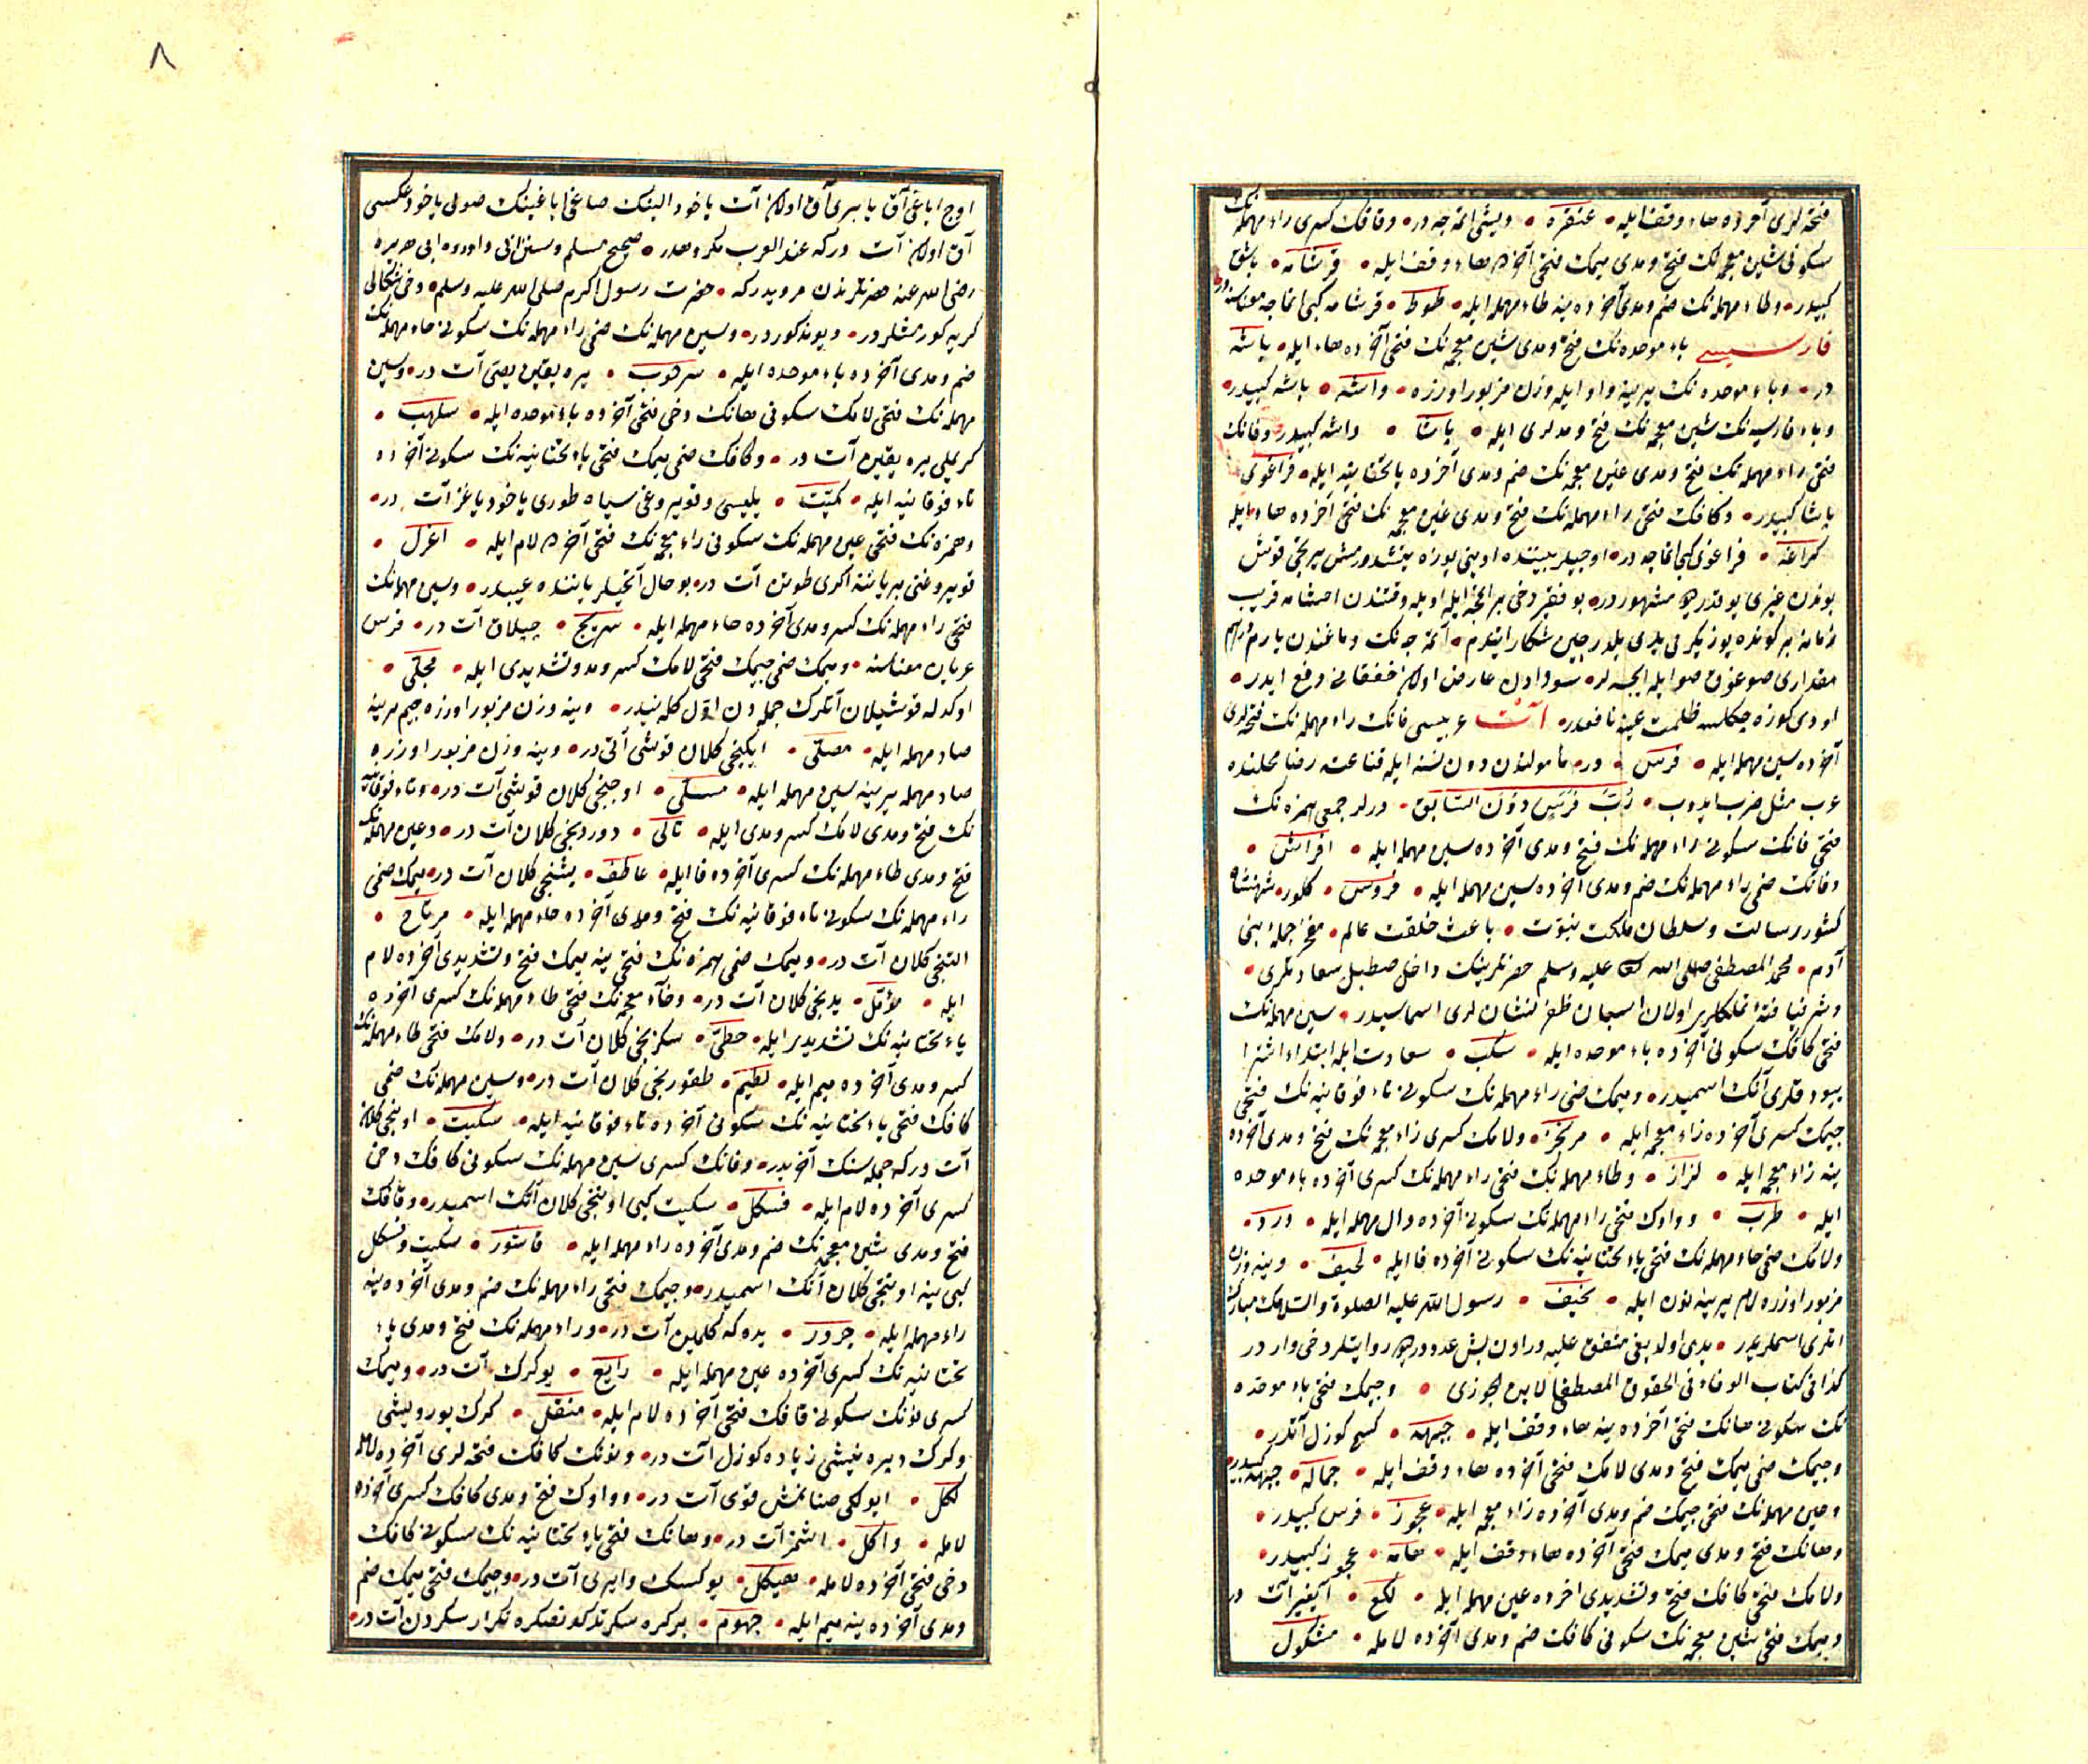 فتحه لری آخرده هاء وقف ایله عنقره ودیشی اتمه جه در وقافك کسری راء مهمله نك
سکونی شین معجمه نك فتح ومدی میمك فتحی آخرده هاء وقف ایله قرشامه باشق
کبیدر وطاء مهمله نك ضم ومدی آخرده ینه طاء مهمله ایله طوط قرشامه کبی اتماجه معناسنه در
فارسیسی باء موحده نك فتح ومدی شین معجمه نك فتحی آخرده هاء ایله باشه
در وباء موحده نك یرینه واو ایله وزن مزبور اوزره واشه باشه کبیدر
وباء فارسیه نك شین معجمه نك فتح ومدلری ایله پاشا واشه کبیدر وفانك
فتحی راء مهمله نك فتح ومدی غین معجمه نك ضم ومدی آخرده یاء تحتانیه ایله فراغوی
پاشا کبیدر وکافك فتحی راء مهمله نك فتح ومدی غین معجمه نك فتحی آخرده هاء ایله
کراغه فراغوی کبی اتماجه در اوجیلر بیننده اوینی بوزه یتشدورمش بریجی قوش
بوندن غیری بو قدر مشهور در بو فقیر دخی برانجه ایله اویله وقتندن اخشامه قریب
زمانه بر کونده یوز یکرمی یدی بلدرجین شکار ایتدم اتمه جه نك دماغندن یارم درهم
مقداری صوغوق صو ایله ایچسه لر سودادن عارض اولان خفقانی دفع ایدر
اودی کوزه چکلسه ظلمت عینه نافعدر آت عربیسی فانك راء مهمله نك فتحه لری
آخرده سین مهمله ایله فرس در مأمولندن دون نسنه ایله قناعته رضا محلنده
عرب مثل ضرب ایدوب رب فرس دون السابق دیرلر جمعی همزه نك
فتحی فانك سکونی راء مهمله نك فتح ومدی آخرده سین مهمله ایله افراس
وفانك ضمی راء مهمله نك ضم ومدی آخرده سین مهمله ایله فروس کلور شهنشاه
کشور رسالت وسلطان مملکت نبوت باعث خلقت عالم مفخر جمله بنی
آدم محمد المصطفی صلی الله علیه وسلم حضرتلرینك داخل صطبل سعادتلری
وشرفیافته تملکلری اولان اسبان ظفر نشان لری اسماسیدر سین مهمله نك
فتحی کافك سکونی آخرده باء موحده ایله سکب سعادت ایله ابتداء اشترا
بیوردقلری آتك اسمیدر ومیمك ضمی راء مهمله نك سکونی تاء فوقانیه نك فتحی
جیمك کسری آخرده زاء معجمه ایله مرتجز ولامك کسری زاء معجمه نك فتح ومدی آخرده
ینه زاء معجمه ایله لزاز وطاء مهمله نك فتحی راء مهمله نك کسری آخرده باء موحده
ایله طرب وواوك فتحی راء مهمله نك سکونی آخرده دال مهمله ایله ورد
ولامك ضمی حاء مهمله نك فتحی یاء تحتانیه نك سکونی آخرده فا ایله لحیف وینه وزن
مزبور اوزره لام یرینه نون ایله نحیف رسول الله علیه الصلوة والسلامك مبارك
اتلری اسملریدر یدی اولدیغی متفق علیه در اون بش عدد در روایتلر دخی وار در
کذا فی کتاب الوفاء فی الحقوق المصطفی لابن الجوزی وجیمك فتحی باء موحده
نك سکونی هانك فتحی آخرده ینه هاء وقف ایله جبهه کسح کوزل آتدر
وجیمك ضمی میمك فتح ومدی لامك فتحی آخرده هاء وقف ایله جماله جبهه کبیدر
وعین مهمله نك فتحی جیمك ضم ومدی آخرده زاء معجمه ایله عجوز فرس کبیدر
وهانك فتح ومدی میمك فتحی آخرده هاء وقف ایله هامه عجوز کبیدر
ولامك فتحی کافك فتح وتشدیدی آخرده عین مهمله ایله لکع آیغیر آت در
ومیمك فتحی شین معجمه نك سکونی کافك ضم ومدی آخرده لامله مشکول
٨
اوچ ایاغی آق یا بری آق اولان آت یاخود النك صاغی ایاغینك صولی یاخود عکسی
آق اولان آت در که عند العرب مکروهدر صحیح مسلم وسنن ابی داود ابی هریره
رضی الله عنه حضرتلرندن مرویدر که حضرت رسول اکرم صلی الله علیه وسلم دخی شکالی
کریه کورمشلر در دیو مذکور در وسین مهمله نك ضمی راء مهمله نك سکونی حاء مهمله نك
ضم ومدی آخرده باء موحده ایله سرحوب یره یقین یصی آت در وسین
مهمله نك فتحی لامك سکونی هانك دخی فتحی آخرده باء موحده ایله سلهب
کریملی یره یقین آت در وکافك ضمی میمك فتحی یاء تحتانیه نك سکونی آخرده
تاء فوقانیه ایله کمیت یلیسی وقویروغی سیاه طوری یاخود یاغز آت در
وهمزه نك فتحی عین مهمله نك سکونی زاء معجمه نك فتحی آخرده لام ایله اعزل
قویروغنی بر یاننه اکری طوتن آت در بو حال آتجیلر یاننده عیبدر وسین مهمله نك
فتحی راء مهمله نك کسر ومدی آخرده حاء مهمله ایله سریح چپلاق آت در فرس
عریان معناسنه ومیمك ضمی جیمك فتحی لامك کسر ومد وتشدیدی ایله مجلی
اوکدله قوشیلان آتلرك جمله دن اول کله نیدر وینه وزن مزبور اوزره جیم یرینه
صاد مهمله ایله مصلی ایکینجی کلان قوشی آتی در وینه وزن مزبور اوزره
صاد مهمله یرینه سین مهمله ایله مسلی اوچنجی کلان قوشی آت در وتاء فوقانیه
نك فتح ومدی لامك کسر ومدی ایله تالی دوردنجی کلان آت در وعین مهمله نك
فتح ومدی طاء مهمله نك کسری آخرده فا ایله عاطف بشنجی کلان آت در میمك ضمی
راء مهمله نك سکونی تاء فوقانیه نك فتح ومدی آخرده حاء مهمله ایله مرتاح
التنجی کلان آت در ومیمك ضمی همزه نك فتحی ینه میمك فتح وتشدیدی آخرده لام
ایله مؤمل یدنجی کلان آت در وحاء مهمله نك فتحی طاء مهمله نك کسری آخرده
یاء تحتانیه نك تشدید ایله حطی سکزنجی کلان آت در ولامك فتحی طاء مهمله نك
کسر ومدی آخرده میم ایله لطیم طقوزنجی کلان آت در وسین مهمله نك ضمی
کافك فتحی یاء تحتانیه نك سکونی آخرده تاء فوقانیه ایله سکیت اوننجی کلان
آت در که جمله سنك آخریدر وفانك کسری سین مهمله نك سکونی کافك دخی
کسری آخرده لام ایله فسکل سکیت کبی اوننجی کلان آتك اسمیدر وقافك
فتح ومدی شین معجمه نك ضم ومدی آخرده راء مهمله ایله قاشور سکیت وفسکل
کبی ینه اوننجی کلان آتك اسمیدر وجیمك فتحی راء مهمله نك ضم ومدی آخرده ینه
راء مهمله ایله جرور یده که کلمین آت در وراء مهمله نك فتح ومدی یاء
تحتانیه نك کسری آخرده عین مهمله ایله رایع یوکرك آت در ومیمك
کسری نونك سکونی قافك فتحی آخرده لام ایله منقل کرك یورویشی
وکرك دیره نیشی زیاده کوزل آت در ونونك کافك فتحه لری آخرده لامله
نکل ایولکی صنانمش قوی آت در وواوك فتح ومدی کافك کسری آخرده
لامله واکل اشمز آت در وهانك فتحی یاء تحتانیه نك سکونی کافك
دخی فتحی آخرده لامله هیکل یوکسك وایری آت در وجیمك فتحی میمك ضم
ومدی آخرده ینه میم ایله جموم برکره سکرتدکدنصکره تکرار سکردن آت در